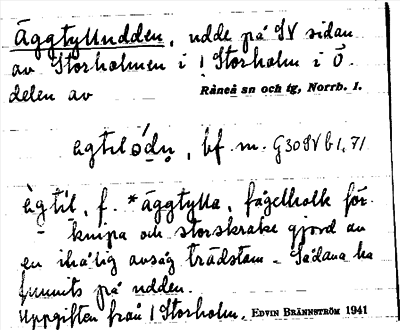 Äggtylludden, udde på SV sidan
av Storholmen i 1 Storholm i ö.
delen av
Råneå sn och tg, Norrb. l.
ägtilọ́dṇ, bf. m. G30SVb1,71
ä̀gtil, f. *äggtylla, fågelholk för
knipa och storskrake gjord av
en ihålig avsåg trädstam. Sådana ha
funnits på udden.
Uppgiften från 1 Storholm. EDVIN BRÄNNSTRÖM 1941